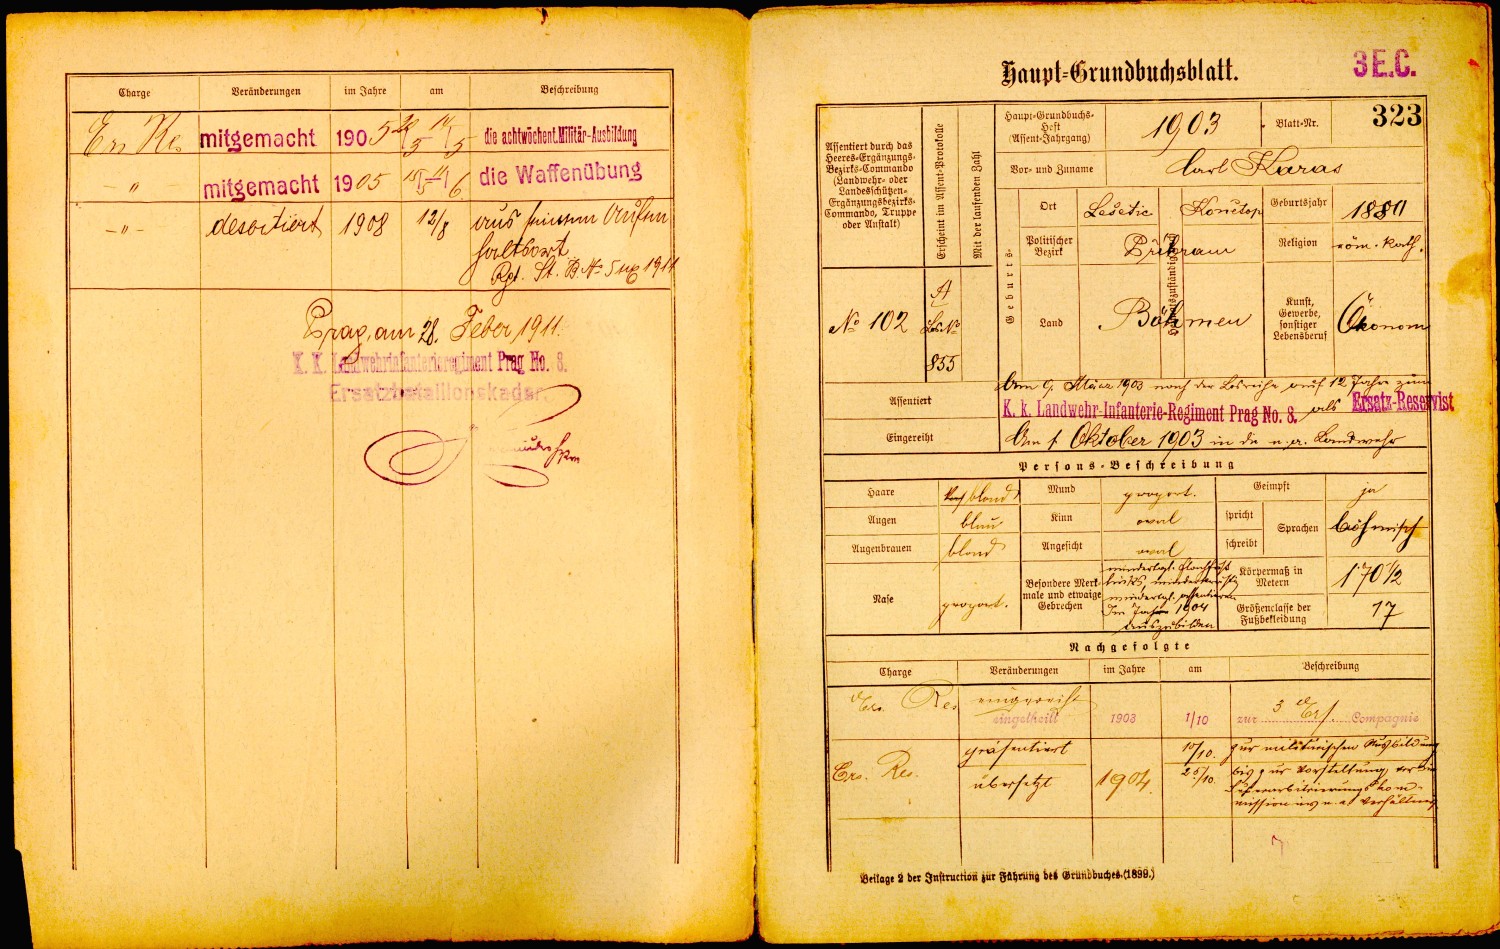 Charge Veränderungen im Jahre am Beschreibung
Ers Res mitgemacht 1905 die achtwöchent. Militär-Ausbildung
– " mitgemacht 1905 die Waffenübung
– " – desertiert 1908 12/8 aus seinem Aufen
haltsort
Rgt. St. B. No 5 1911
Prag, am 28. Feber 1911.
K. K. Landwehrinfanterieregiment Prag No. 8.
Ersatzbataillonskader.
Haupt-Grundbuchsblatt.
3 E.C.
Assentiert durch das
Heeres-Ergänzungs-
Bezirks-Commando
(Landwehr- oder
Landesschützen-
Ergänzungsbezirks-
Commando, Truppe
oder Anstalt)
Erscheint im Assent-Protokolle
Mit der laufenden Zahl
Haupt-Grundbuchs-
Heft
(Assent-Jahrgang)
1903
Blatt-Nr. 323
Vor- und Zuname Carl Karas
Geburts-
Ort Lešetic
Politischer
Bezirk
Přibram
Land Böhmen
Geburtsjahr 1880
Religion röm. kath.
Kunst,
Gewerbe,
sonstiger
Lebensberuf
Ökonom
No 102
A
Los No
855
Assentiert Am 9. März 1903 nach der Losreihe auf 12 Jahre zum
K. k. Landwehr-Infanterie-Regiment Prag No. 8. als Ersatz-Reservist
Eingereiht Am 1. Oktober 1903 in die n. a. Landwehr
Persons-Beschreibung
Haare blond Mund proport. Geimpft ja
Augen blau Kinn oval spricht Sprachen böhmisch
Augenbrauen blond Angesicht oval schreibt
Nase proport.
Besondere Merk-
male und etwaige
Gebrechen
Im Jahre 1904
auszubilden
Körpermaß in
Metern
1·70 1/2
Größenclasse der
Fußbekleidung
17
Nachgefolgte
Charge Veränderungen im Jahre am Beschreibung
Ers. Res eingereiht
eingetheilt 1903 1/10 zur 3 Ers. Compagnie
Ers. Res. präsentiert 1904. 10/10. zur militärischen Ausbildung
übersetzt 25/10. bis zur Vorstellung vor die
Superarbitrierungskom-
mission ins n. a. Verhältnis
Beilage 2 der Instruction zur Führung des Grundbuches. (1899.)